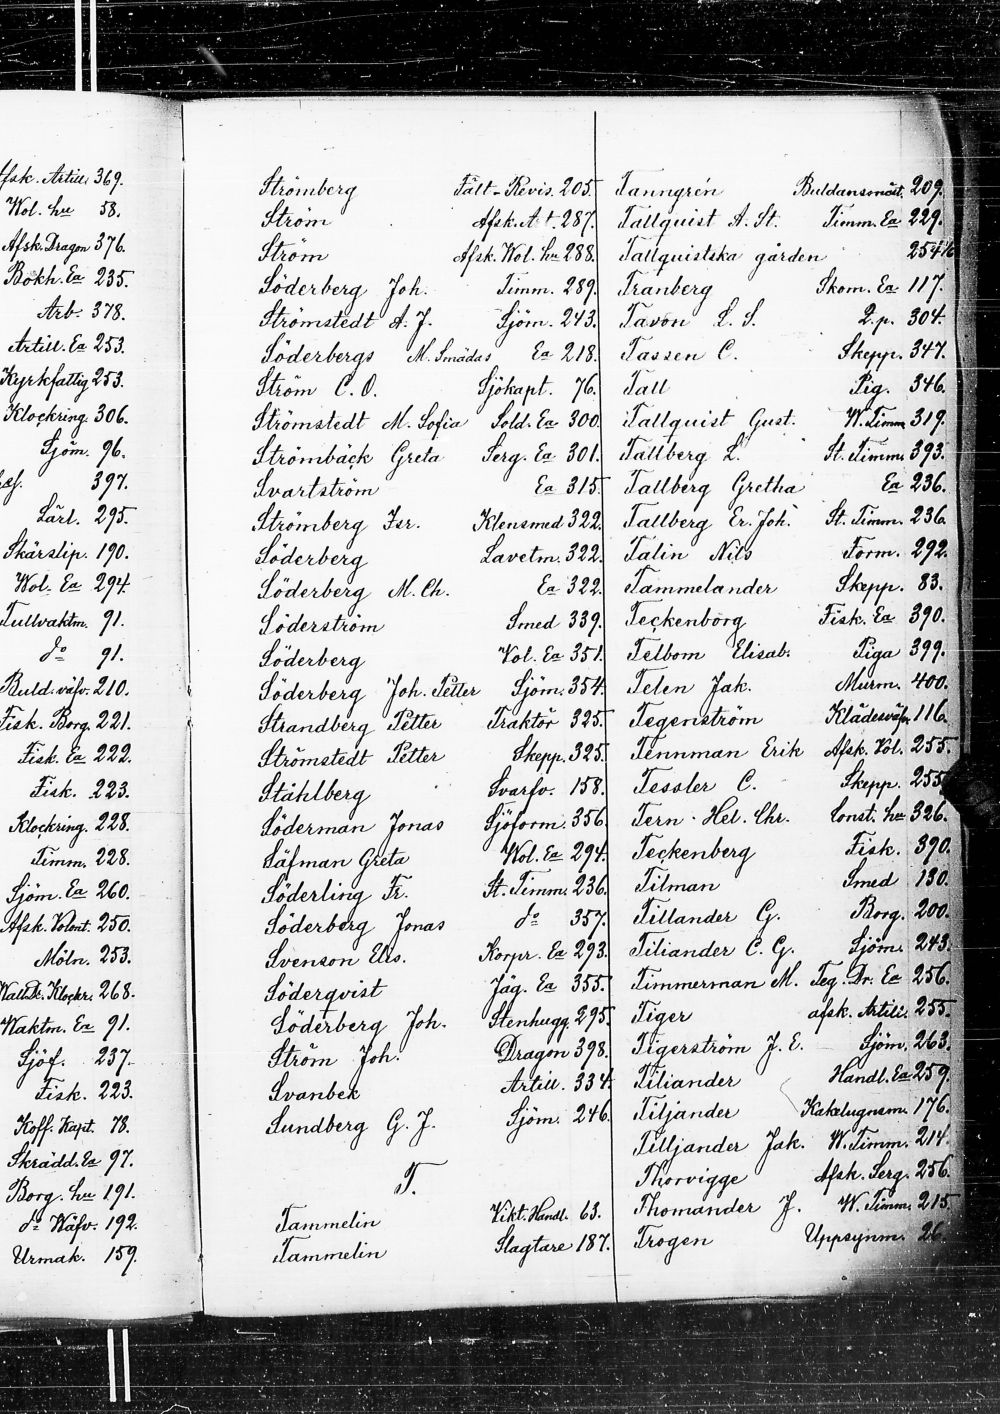 Afsk. Artill. 369.
Wol. hu 58.
Afsk. Dragon 376.
Bokh. Ea 235.
Arb. 378.
Artill. Ea 253.
Kyrkfattig 253.
Klockring. 306.
Sjöm. 96.
397.
Lärl. 295.
Skärslip. 190.
Wol. Ea 294.
Tullvaktm. 91.
do 91.
Buld. väfv. 210.
Fisk. Borg. 221.
Fisk. Ea 222.
Fisk. 223.
Klockring. 228.
Timm. 228.
Sjöm. Ea 260.
Afsk. Volont. 250.
Möln. 253.
Klockr. 268.
Waktm. Ea 91.
Sjöf. 237.
Fisk. 223.
Koff. Kapt. 78.
Skrädd. Ea 97.
Borg. hu 191.
do Wäfv. 192.
Urmak. 159.
Strömberg Fält-Revis. 205.
Ström Afsk. A t. 287.
Ström Afsk. Wol. hu 288.
Söderberg Joh. Timm. 289.
Strömstedt A. J. Sjöm. 243.
Söderbergs M. Smädas Ea 218.
Ström C. O. Sjökapt. 76.
Strömstedt M. Sofia Sold. Ea 300.
Strömbäck Greta Serg. Ea 301.
Svartström Ea 315.
Strömberg Isr. Klensmed 322.
Söderberg Lavetm. 322.
Söderberg M. Ch. Ea 322.
Söderström Smed 339.
Söderberg Vol. Ea 351.
Söderberg Joh. Petter Sjöm. 354.
Strandberg Petter Traktör 325.
Strömstedt Petter Skepp. 325.
Ståhlberg Svarfv. 158.
Söderman Jonas Sjöform. 356.
Säfman Greta Wol. Ea 294.
Söderling Fr. St. Timm. 236.
Söderberg Jonas do 357.
Svenson Els. Korpr. Ea 293.
Söderqvist Jäg. Ea 355.
Söderberg Joh. Stenhugg. 295.
Ström Joh. Dragon 398.
Svanbek Artill. 334.
Sundberg G. J. Sjöm. 246.
T.
Tammelin Vikt. Handl. 63.
Tammelin Slagtare 187.
Tanngrén Buldansmäst. 209.
Tallquist A. St. Timm. Ea 229.
Tallquistska gården 254½
Tranberg Skom. Ea 117.
Tavon L. S. Q. p. 304.
Tassen C. Skepp. 347.
Tall Pig. 346.
Tallquist Gust. W. Timm. 319.
Tallberg L. St. Timm. 393.
Tallberg Gretha Ea 236.
Tallberg Er. Joh. St. Timm. 236.
Talin Nils Form. 292.
Tammelander Skepp. 83.
Teckenborg Fisk. Ea 390.
Telbom Elisab. Piga 399.
Telen Jak. Murm. 400.
Tegenström Klädesväfv. 116.
Tennman Erik Afsk. Vol. 255.
Tessler C. Skepp. 255.
Tern Hel. Chr. Const. hu 326.
Teckenberg Fisk. 390.
Tilman Smed 130.
Tillander G. Borg. 200.
Tiliander C. G. Sjöm. 243.
Timmerman M. Teg. Dr. Ea 256.
Tiger afsk. Artill. 255.
Tigerström J. E. Sjöm. 263.
Tiliander Handl. Ea 259.
Tiljander Kakelugnsm. 176.
Tilljander Jak. W. Timm. 214.
Thorvigge Afsk. Serg. 256.
Thomander J. W. Timm. 215.
Trogen Uppsynm. 26.